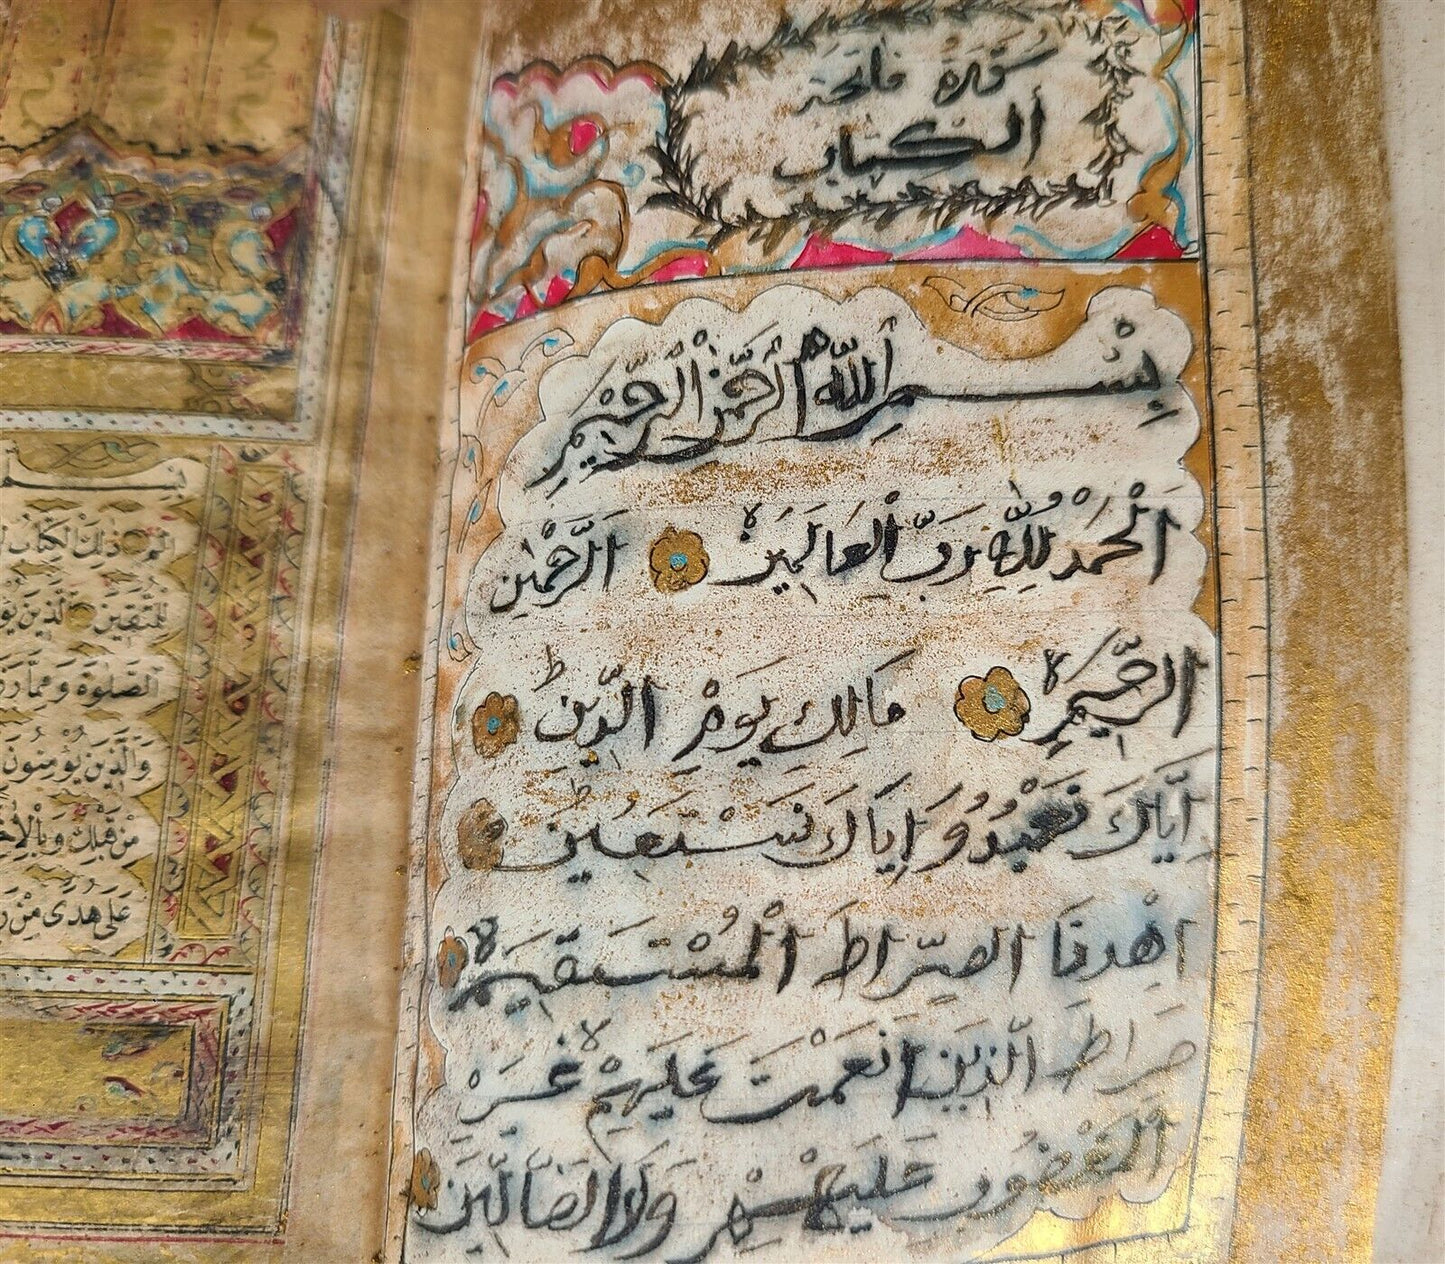 سورة فاتحة
الكتاب
بِسْمِ اللّٰهِ الرَّحْمٰنِ الرَّحِيْمِ
اَلْحَمْدُ لِلّٰهِ رَبِّ الْعَالَمِيْنَ ۙ اَلرَّحْمٰنِ
الرَّحِيْمِ ۙ مَالِكِ يَوْمِ الدِّيْنِ ؕ
اِيَّاكَ نَعْبُدُ وَ اِيَاكَ نَسْتَعِيْنَ ؕ
اِهْدِنَا الصِّرَاطَ الْمُسْتَقِيْمَ ۙ
صِرَاطَ الَّذِيْنَ اَنْعَمْتَ عَلَيْهِمْ ۙ غَيْرَ
الْمَغْضُوْبِ عَلَيْهِمْ وَلَا الضَّالِّيْنَ
بِسْمِ
الم ذٰلِكَ الْكِتَابُ
لِلْمُتَّقِيْنَ الَّذِيْنَ
الصَّلٰوةَ وَمِمَّا
وَالَّذِيْنَ يُؤْمِنُوْنَ
مِنْ قَبْلِكَ وَبِالْاٰخِ
عَلٰى هُدًى مِنْ